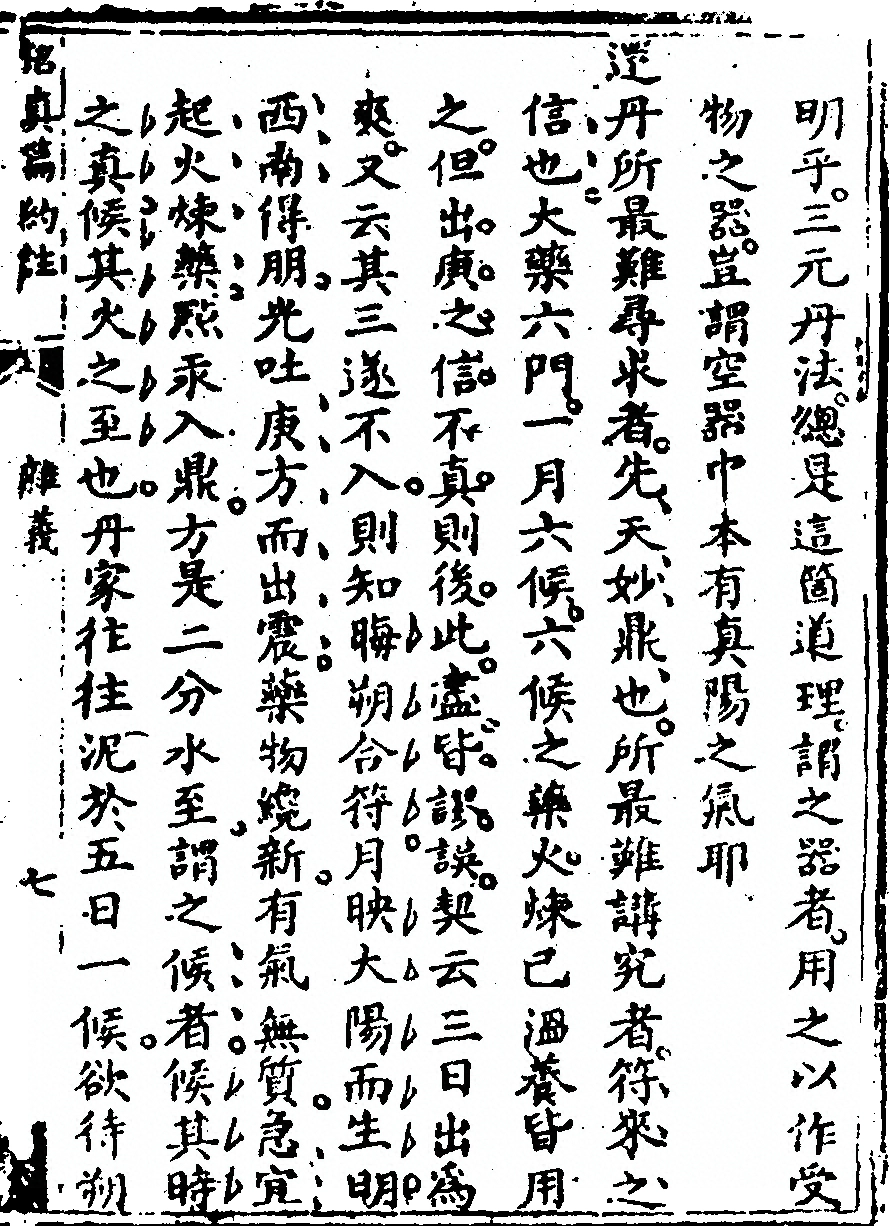 明乎三元丹法總是這箇道理謂之器者用之以作受
物之器豈謂空器中本有真陽之氣耶
還丹所最難尋求者先天妙鼎也所最難講究者符來之
信也大藥六門一月六候六候之藥火煉已溫養皆用
之但出庚之信不真則後此盡皆謬誤契云三日出為
爽又云其三遂不入則知晦朔合符月映大陽而生明
西南得朋光吐庚方而出震藥物纔新有氣無質急宜
起火煉藥點汞入鼎方是二分水至謂之候者候其時
之真候其火之至也丹家往往泥於五日一候欲待朔
悟真篇約註 雜義 七